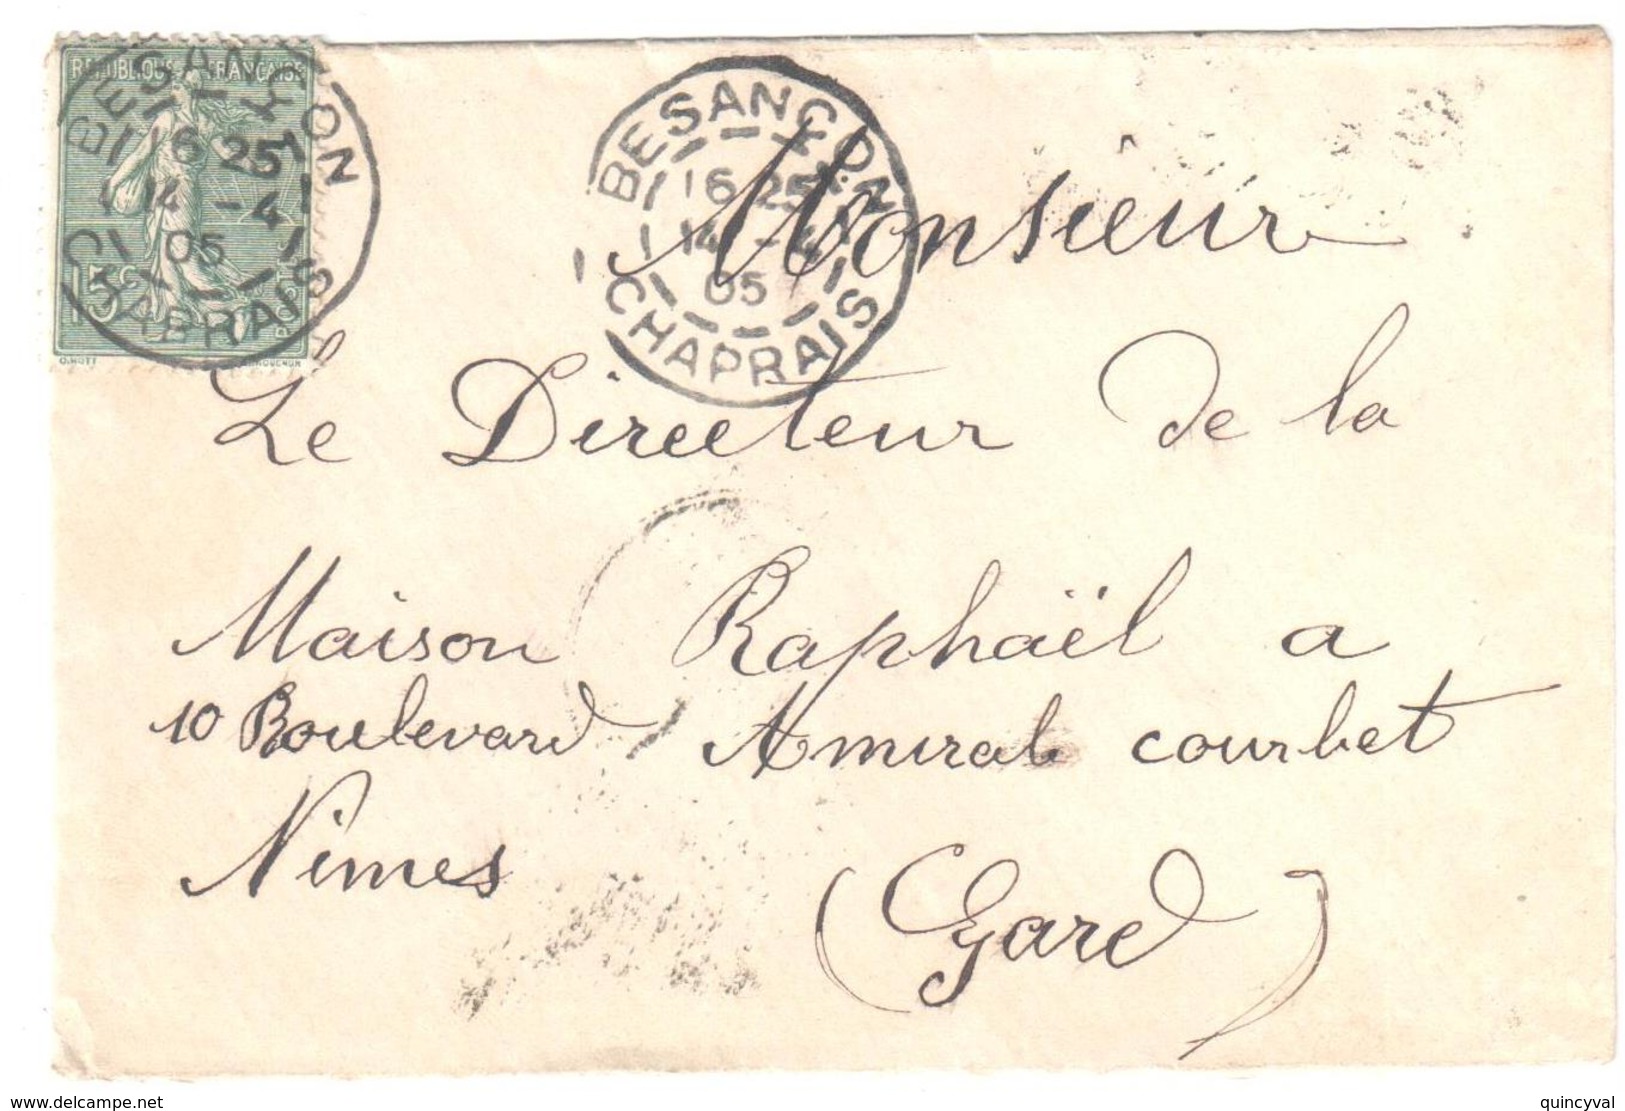 REPUBLIQUE FRANÇAISE
15c
BESANÇON
16 25
14 - 4
05
CHAPRAIS
BESANÇON
16 25
14 - 4
05
CHAPRAIS
Monsieur
Le Directeur de la
Maison Raphaël a
10 Boulevard Amiral courbet
Nimes (Gard)
delcampe.net
quincyval